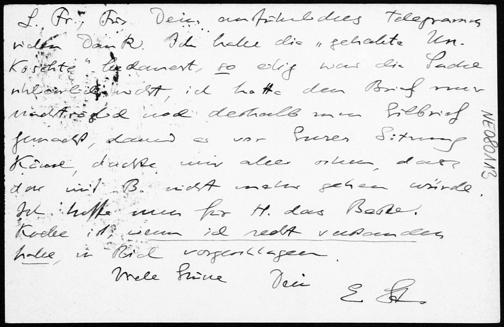 L. Fr., Für Dein ausführliches Telegramm
vielen Dank. Ich habe die "gehabte Un-
Koschte" bedauert, so eilig war die Sache
schließlich nicht, ich hatte den Brief nur
nachträglich und deshalb zum Eilbrief
gemacht, damit er vor Eurer Sitzung
käme, dachte mir aber schon, dass
das mit B. nicht mehr gehen würde.
Ich hoffe nun für H. das Beste.
ist, wenn ich recht verstanden
habe, in vorgeschlagen.
Viele Grüße Dein
E
NE080113